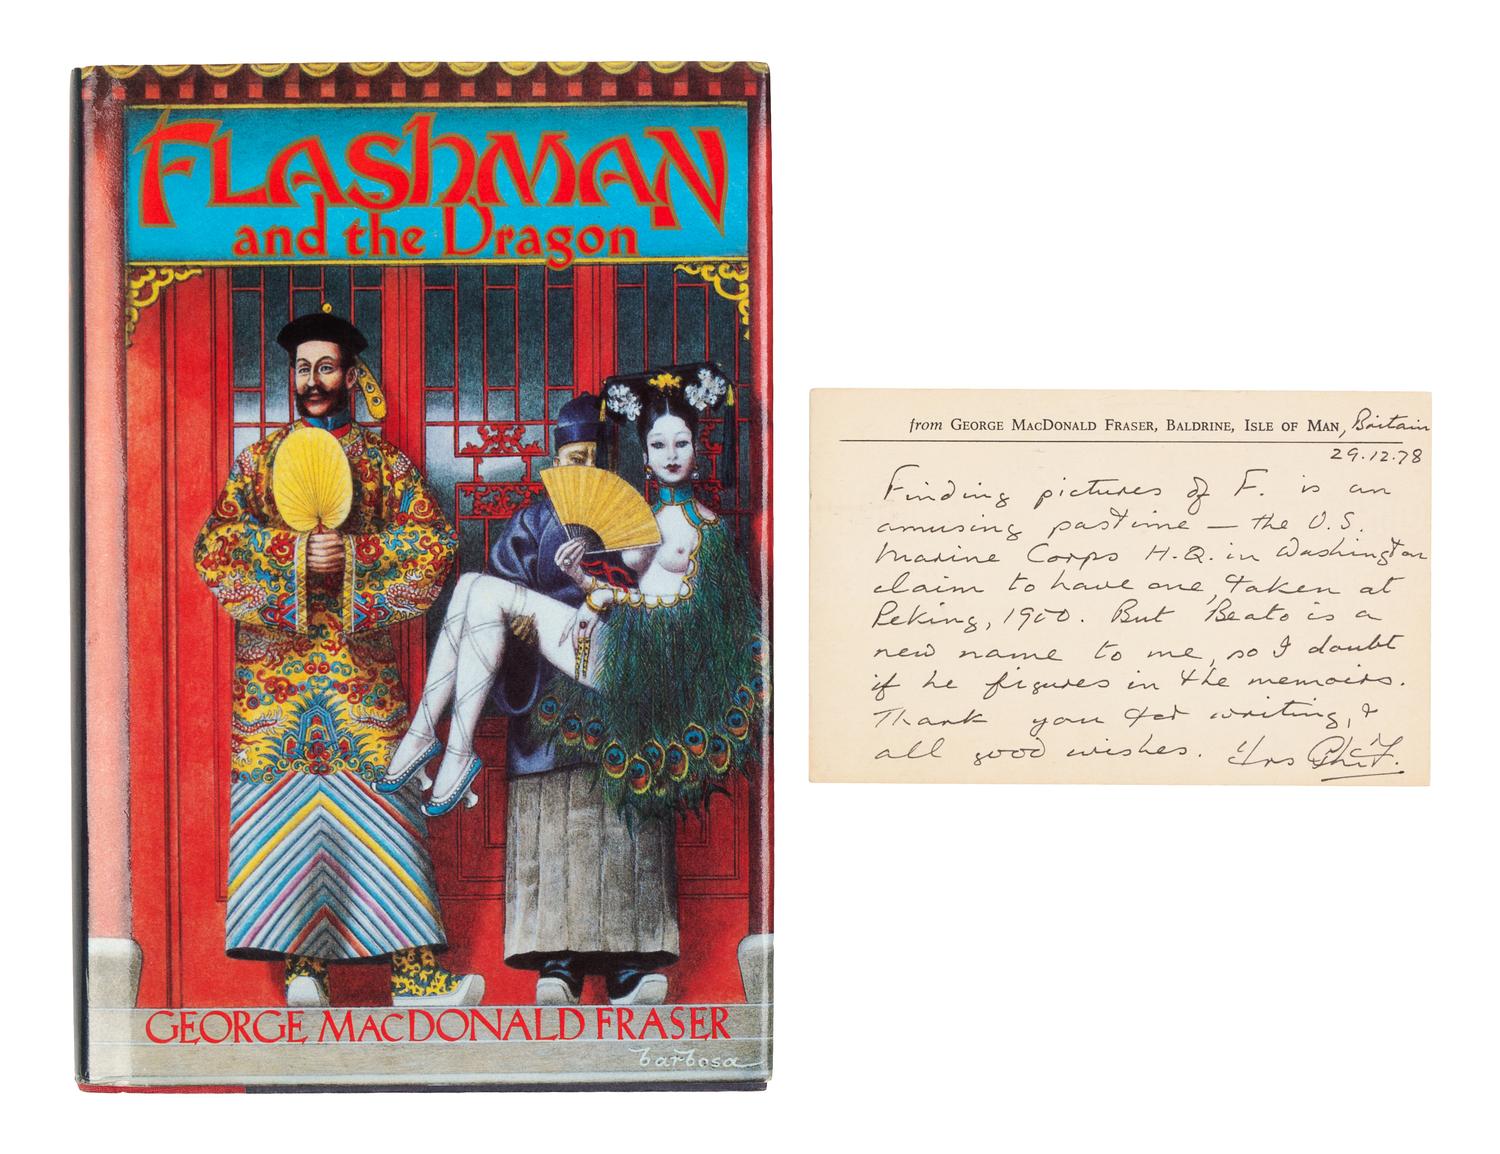 FLAShMAN
and the Dragon
GEORGE MACDONALD FRASER
barbosa
from GEORGE MACDONALD FRASER, BALDRINE, ISLE OF MAN, Britain
29.12.78
Finding pictures of F. is an
amusing pastime — the U.S.
Marine Corps H.Q. in Washington
claim to have one, taken at
Peking, 1900. But Beato is a
new name to me, so I doubt
if he figures in the memoirs.
Thank you for writing, &
all good wishes. Yrs